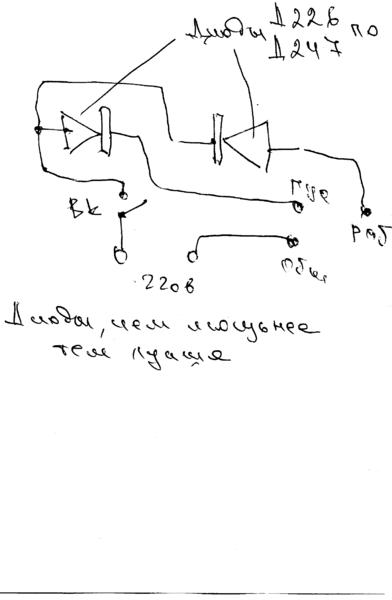 Диоды Д226 по
Д247
ВК
Пус
Раб
Общ
220в
Диоды, чем мощьнее
тем лучше